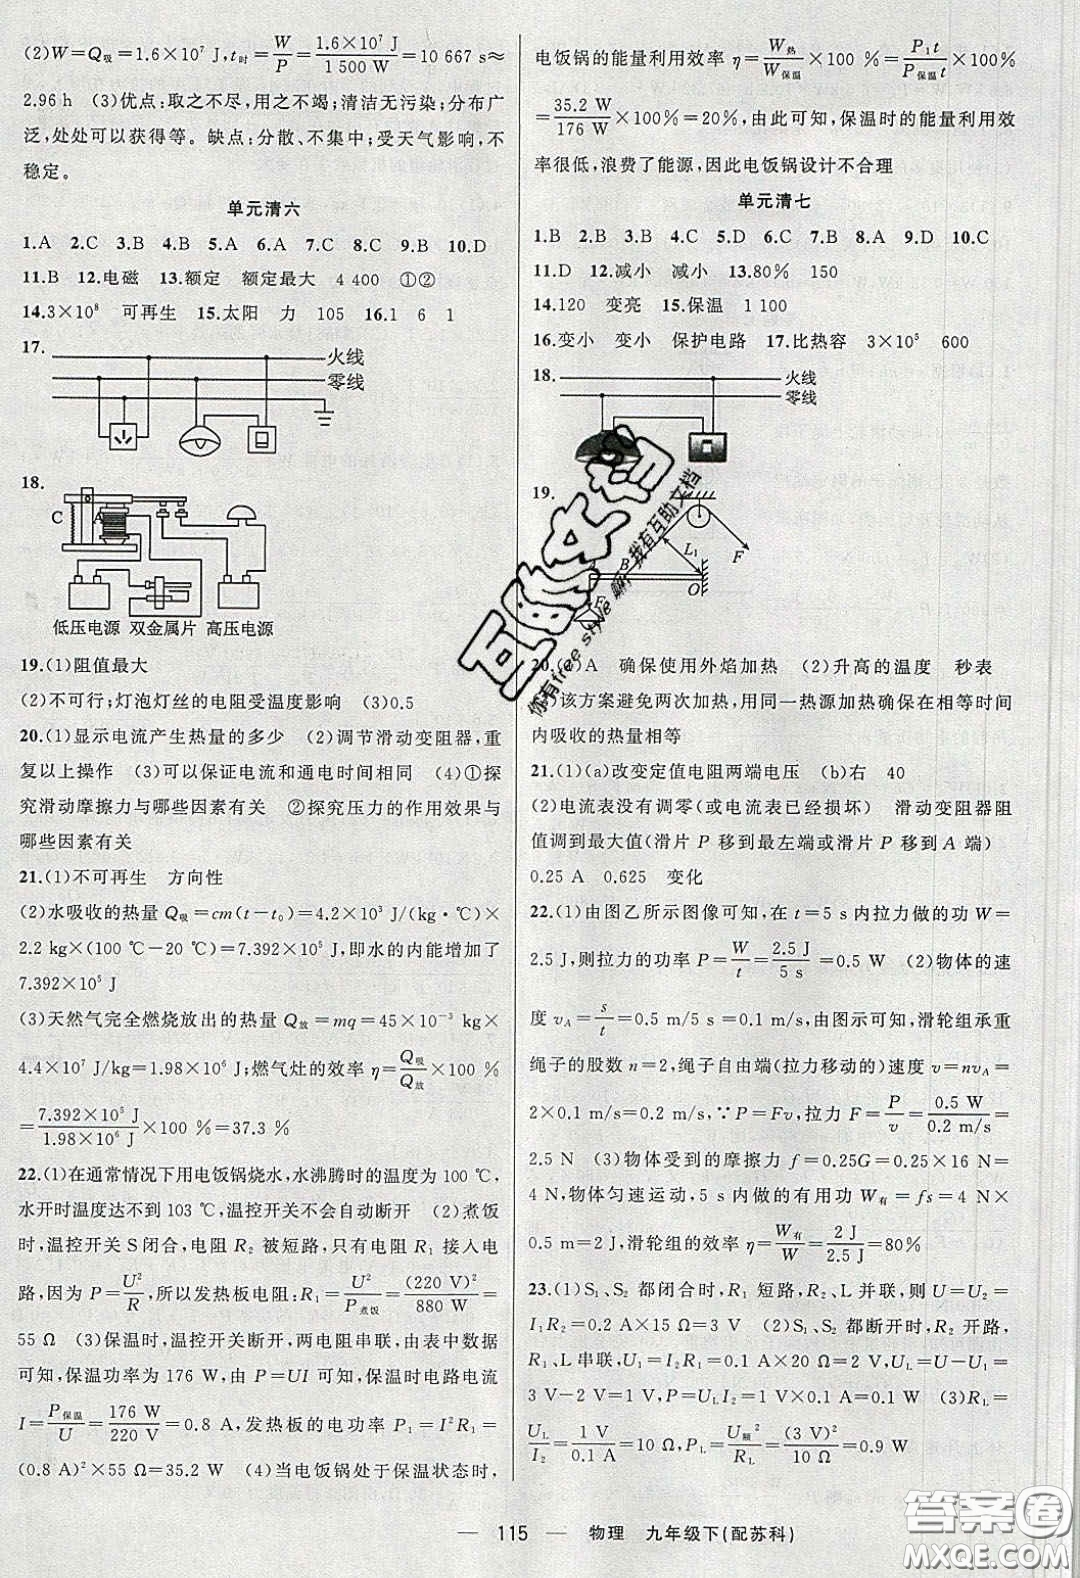 (2)W=Q吸=1.6×10⁷ J,t时=W/P=1.6×10⁷ J/1 500 W=10 667 s≈
2.96 h　(3)优点:取之不尽,用之不竭;清洁无污染;分布广
泛,处处可以获得等。缺点:分散、不集中;受天气影响,不
稳定。
单元清六
1.A　2.C　3.B　4.B　5.A　6.A　7.C　8.C　9.B　10.D
11.B　12.电磁　13.额定　额定最大　4 400　①②
14.3×10⁸　可再生　15.太阳　力　105　16.1　6　1
17.
火线
零线
18.
C
A
低压电源　双金属片　高压电源
19.(1)阻值最大
(2)不可行;灯泡灯丝的电阻受温度影响　(3)0.5
20.(1)显示电流产生热量的多少　(2)调节滑动变阻器,重
复以上操作　(3)可以保证电流和通电时间相同　(4)①探
究滑动摩擦力与哪些因素有关　②探究压力的作用效果与
哪些因素有关
21.(1)不可再生　方向性
(2)水吸收的热量 Q吸=cm(t-t₀)=4.2×10³ J/(kg·℃)×
2.2 kg×(100 ℃-20 ℃)=7.392×10⁵ J,即水的内能增加了
7.392×10⁵ J
(3)天然气完全燃烧放出的热量 Q放=mq=45×10⁻³ kg×
4.4×10⁷ J/kg=1.98×10⁶ J;燃气灶的效率 η=Q吸/Q放×100 %
=7.392×10⁵ J/1.98×10⁶ J×100 %=37.3 %
22.(1)在通常情况下用电饭锅烧水,水沸腾时的温度为 100 ℃,
水开时温度达不到 103 ℃,温控开关不会自动断开　(2)煮饭
时,温控开关 S 闭合,电阻 R₂ 被短路,只有电阻 R₁ 接入电
路,因为 P=U²/R,所以发热板电阻:R₁=U²/P煮饭=(220 V)²/880 W=
55 Ω　(3)保温时,温控开关断开,两电阻串联,由表中数据
可知,保温功率为 176 W,由 P=UI 可知,保温时电路电流
I=P保温/U=176 W/220 V=0.8 A,发热板的电功率 P₁=I²R₁=
(0.8 A)²×55 Ω=35.2 W　(4)当电饭锅处于保温状态时,
电饭锅的能量利用效率 η=W热/W保温×100 %=P₁t/P保温t×100%
=35.2 W/176 W×100%=20%,由此可知,保温时的能量利用效
率很低,浪费了能源,因此电饭锅设计不合理
单元清七
1.B　2.B　3.B　4.C　5.D　6.C　7.B　8.A　9.D　10.C
11.D　12.减小　减小　13.80%　150
14.120　变亮　15.保温　1 100
16.变小　变小　保护电路　17.比热容　3×10⁵　600
18.
火线
零线
19.
L₁
F
B
O
20.(1)A　确保使用外焰加热　(2)升高的温度　秒表
该方案避免两次加热,用同一热源加热确保在相等时间
内吸收的热量相等
21.(1)(a)改变定值电阻两端电压　(b)右　40
(2)电流表没有调零(或电流表已经损坏)　滑动变阻器阻
值调到最大值(滑片 P 移到最左端或滑片 P 移到 A 端)
0.25 A　0.625　变化
22.(1)由图乙所示图像可知,在 t=5 s 内拉力做的功 W=
2.5 J,则拉力的功率 P=W/t=2.5 J/5 s=0.5 W　(2)物体的速
度 vA=s/t=0.5 m/5 s=0.1 m/s,由图示可知,滑轮组承重
绳子的股数 n=2,绳子自由端(拉力移动的)速度 v=nvA=
2×0.1 m/s=0.2 m/s,∵P=Fv,拉力 F=P/v=0.5 W/0.2 m/s=
2.5 N　(3)物体受到的摩擦力 f=0.25G=0.25×16 N=
4 N,物体匀速运动,5 s 内做的有用功 W有=fs=4 N×
0.5 m=2 J,滑轮组的效率 η=W有/W=2 J/2.5 J=80%
23.(1)S₁、S₂ 都闭合时,R₁ 短路,R₂、L 并联,则 U=U₂=
I₁R₂=0.2 A×15 Ω=3 V　(2)S₁、S₂ 都断开时,R₂ 开路,
R₁、L 串联,U₁=I₂R₁=0.1 A×20 Ω=2 V,UL=U-U₁=
3 V-2 V=1 V,P=ULI₂=1 V×0.1 A=0.1 W　(3)RL=
UL/I₂=1 V/0.1 A=10 Ω,PL=U额²/RL=(3 V)²/10 Ω=0.9 W
— 115 —　物理　九年级下(配苏科)
答案圈
MXQE.COM